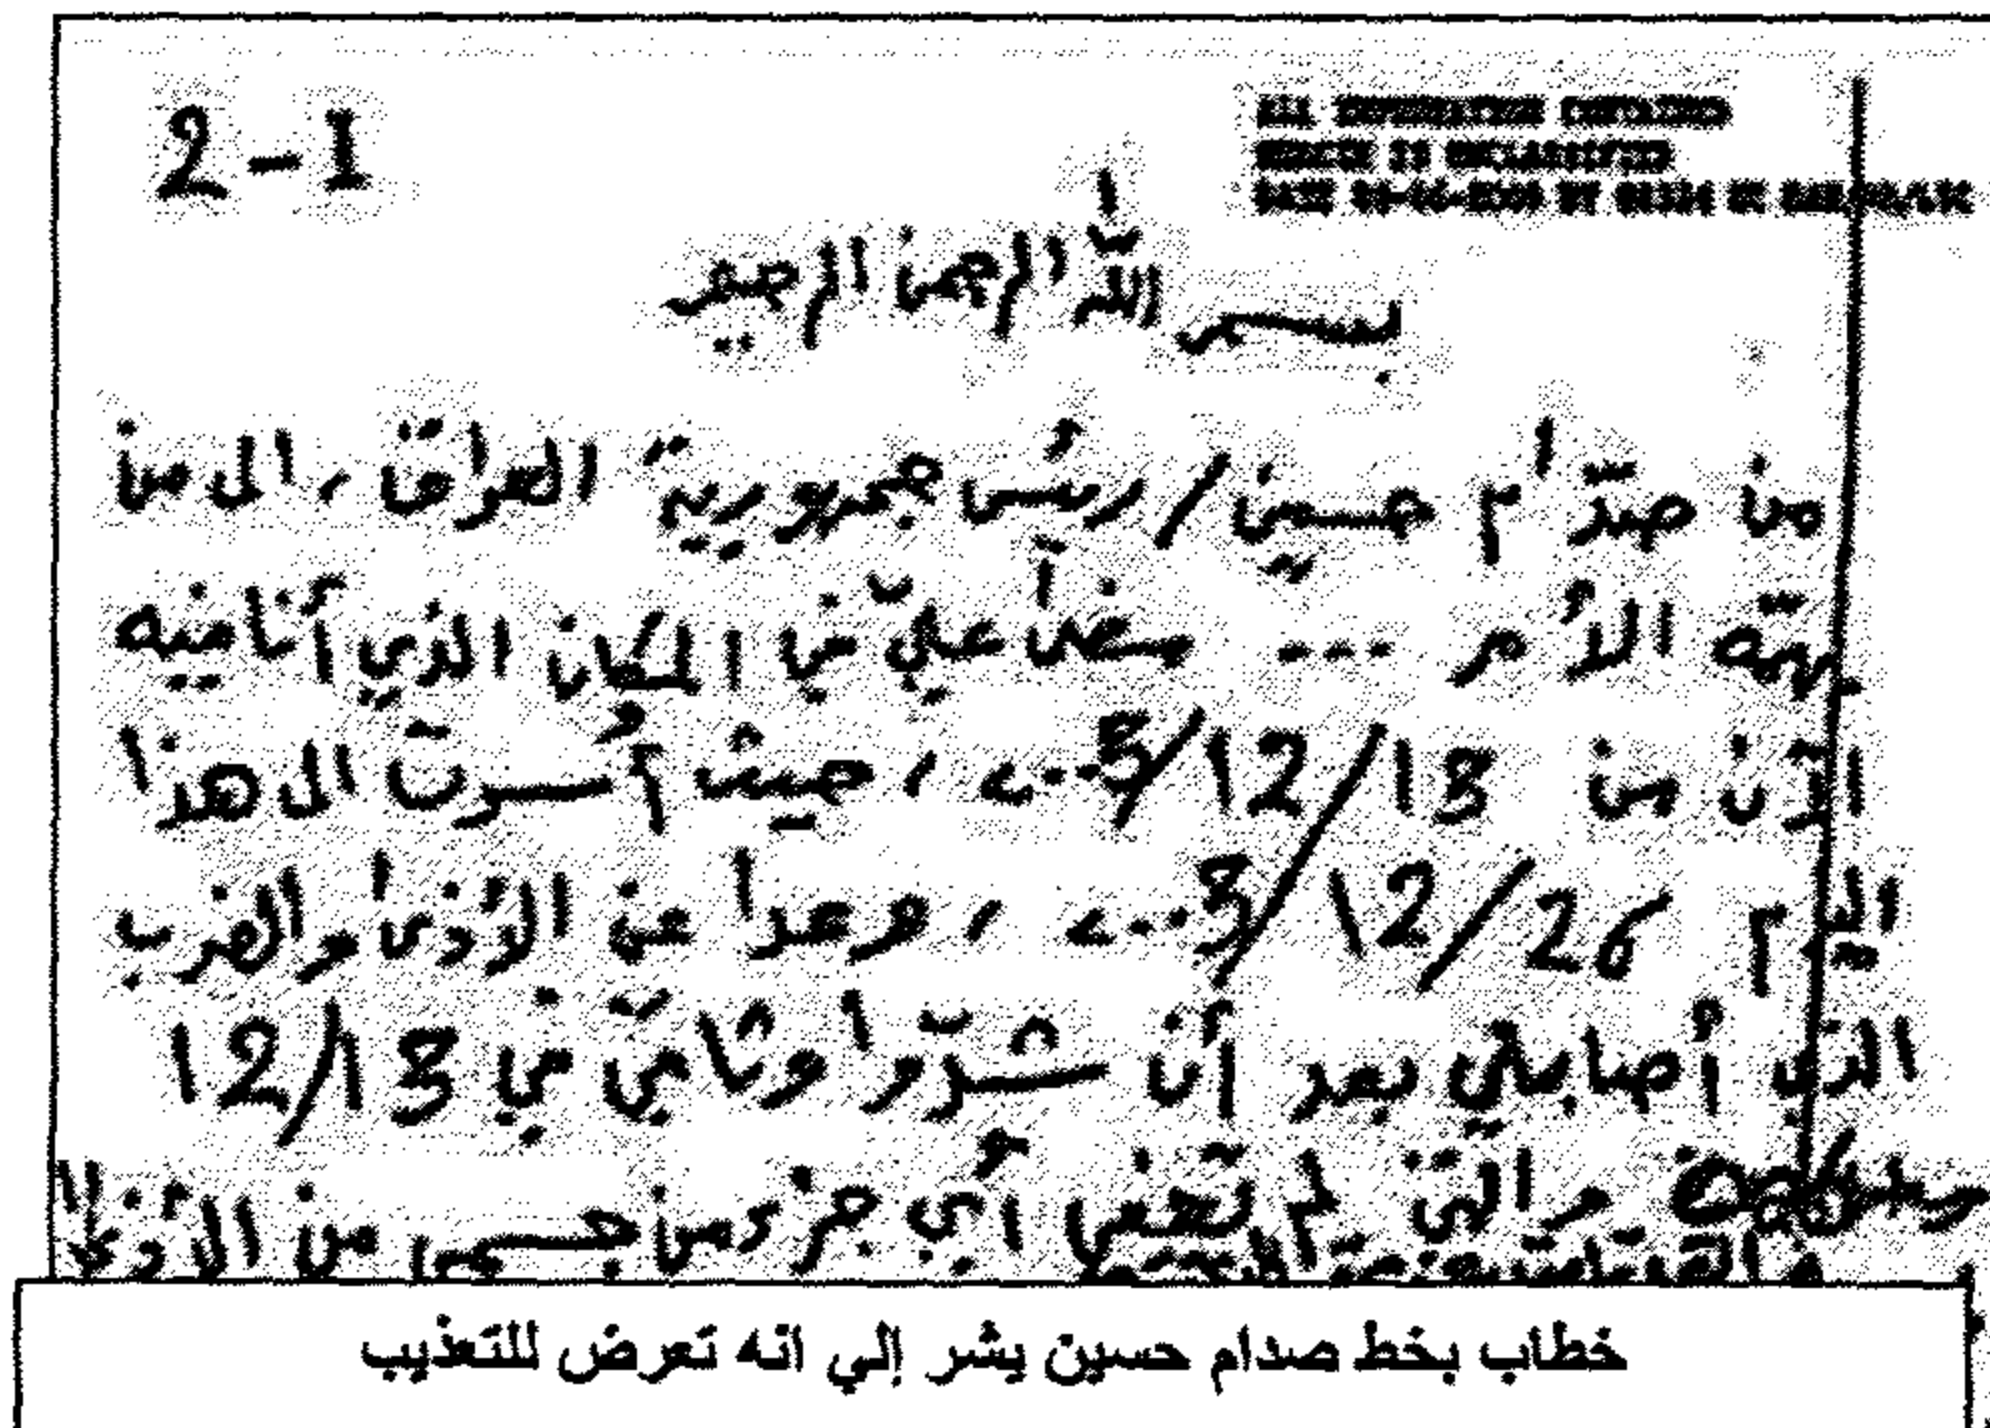 2-1
ALL INFORMATION CONTAINED
HEREIN IS UNCLASSIFIED
DATE BY
بسم اللّه الرحمن الرحيم
من صدّام حسين / رئيس جمهورية العراق، الى من
يهمّه الأمر --- مضىٰ عليّ في المكان الذي أنا فيه
الآن من 13/12/2003، حيث أُسرت الى هذا
اليوم 26/12/2003، وعدا عن الأذى والضرب
الذي أصابني بعد أن شدّوا وثاقي في 12/13
والتي لم تعفى أي جزء من جسمي من الأذى
خطاب بخط صدام حسين يشر إلي انه تعرض للتعذيب